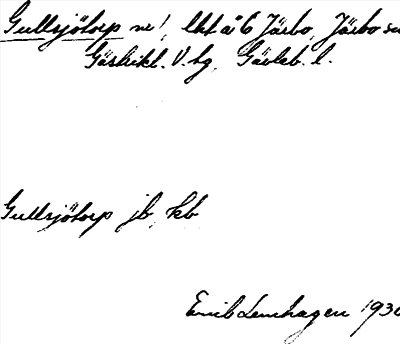 Gullsjötorp nr 1, lht å 6 Järbo, Järbo sn
Gästrikl. V. hg, Gävleb. l.
Gullsjötorp jb, kb
Emil Lennhagen 1930